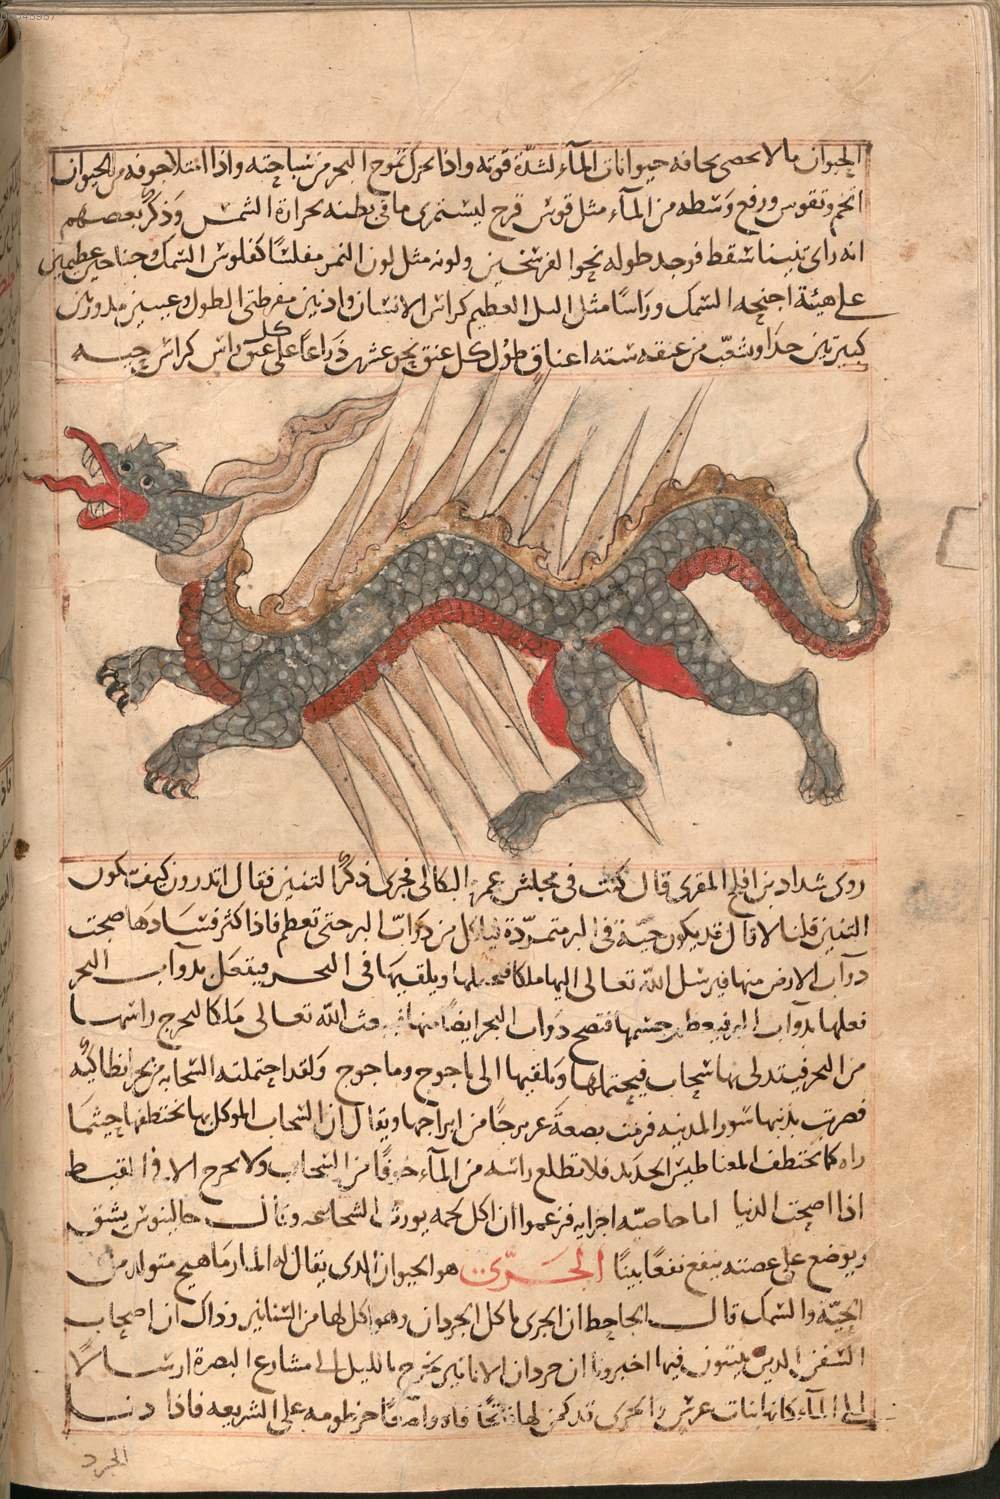 الحيوان ما لا يحصى يخافه حيوانات المآء لشدّة قوته واذا تحرك تموج البحر من سباحته واذا امتلا جوفه من الحيوان
اتخم وتقوس ورفع وسطه من المآء مثل قوس قزح ليستمرى ما فى بطنه بحرارة الشمس وذكر بعضهم
انه راى تنينا سقط فوجد طوله نحو الفرسخين ولونه مثل لون النمر مفلسًا كفلوس السمك وجناحين عظيمين
على هيئة اجنحه السمك وراسًا مثل التل العظيم كراس الانسان واذنين مفرطتى الطول وعينين مدورتين
كبيرتين جدًا وتشعّب من عنقه سته اعناق طول كل عنق نحو عشرين ذراعًا على كل عنق راس كراس حيه
روى شداد بن افلح المقرى قال كنت فى مجلس عمر البكالى فجرى ذكر التنين فقال اتدرون كيف يكون
التنين قلنا لا قال قد يكون حيّة فى البر متمرّدة فياكل من دوابّ البر حتى تعظم فاذا كثر فسادها ضجت
دوآب الارض منها فيرسل الله تعالى اليها ملكا فيحملها ويلقيها فى البحر فيفعل بدوآب البحر
فعلها بدوآب البر فيعظم جسمها فتضج دواب البحر ايضًا منها فيبعث الله تعالى ملكا ليخرج راسها
من البحر فيتدلى بها سحاب فيحتملها ويلقيها الى ياجوج وماجوج ولقد احتملته السحابه من بحر انطاكيّه
فضربت بذنبها سور المدينه فرمت بضعة عشر برجًا من ابراجها ويقال ان السحاب الموكل بها تختطفها حيثما
راه كما يختطف المغناطيس الحديد فلا تطلع راسه من المآء خوفًا من السحاب ولا يخرج الا فى القيظ
اذا اصحت الدنيا اما خاصيّه اجزايه فزعموا ان اكل لحمه يورث الشجاعه وقال جالينوس يشق
ويوضع على عضته ينفع نفعًا بينًا الجرّى هو الحيوان الذى يقال له المارماهيج متولد من
الحيّة والسمك قال الجاحظ ان الجرى ياكل الجردان وهو اكل لها من السنانير وذاك ان اصحاب
السفن الذين يبيتون فيها اخبرونا ان جردان الانابير يخرج بالليل الى مشارع البصرة ارسالًا
الى المآء كانها بنات عرس والجرى قد كمن لها فاتحًا فاه واضعًا خرطومه على الشريعه فاذا دنا
الجرد